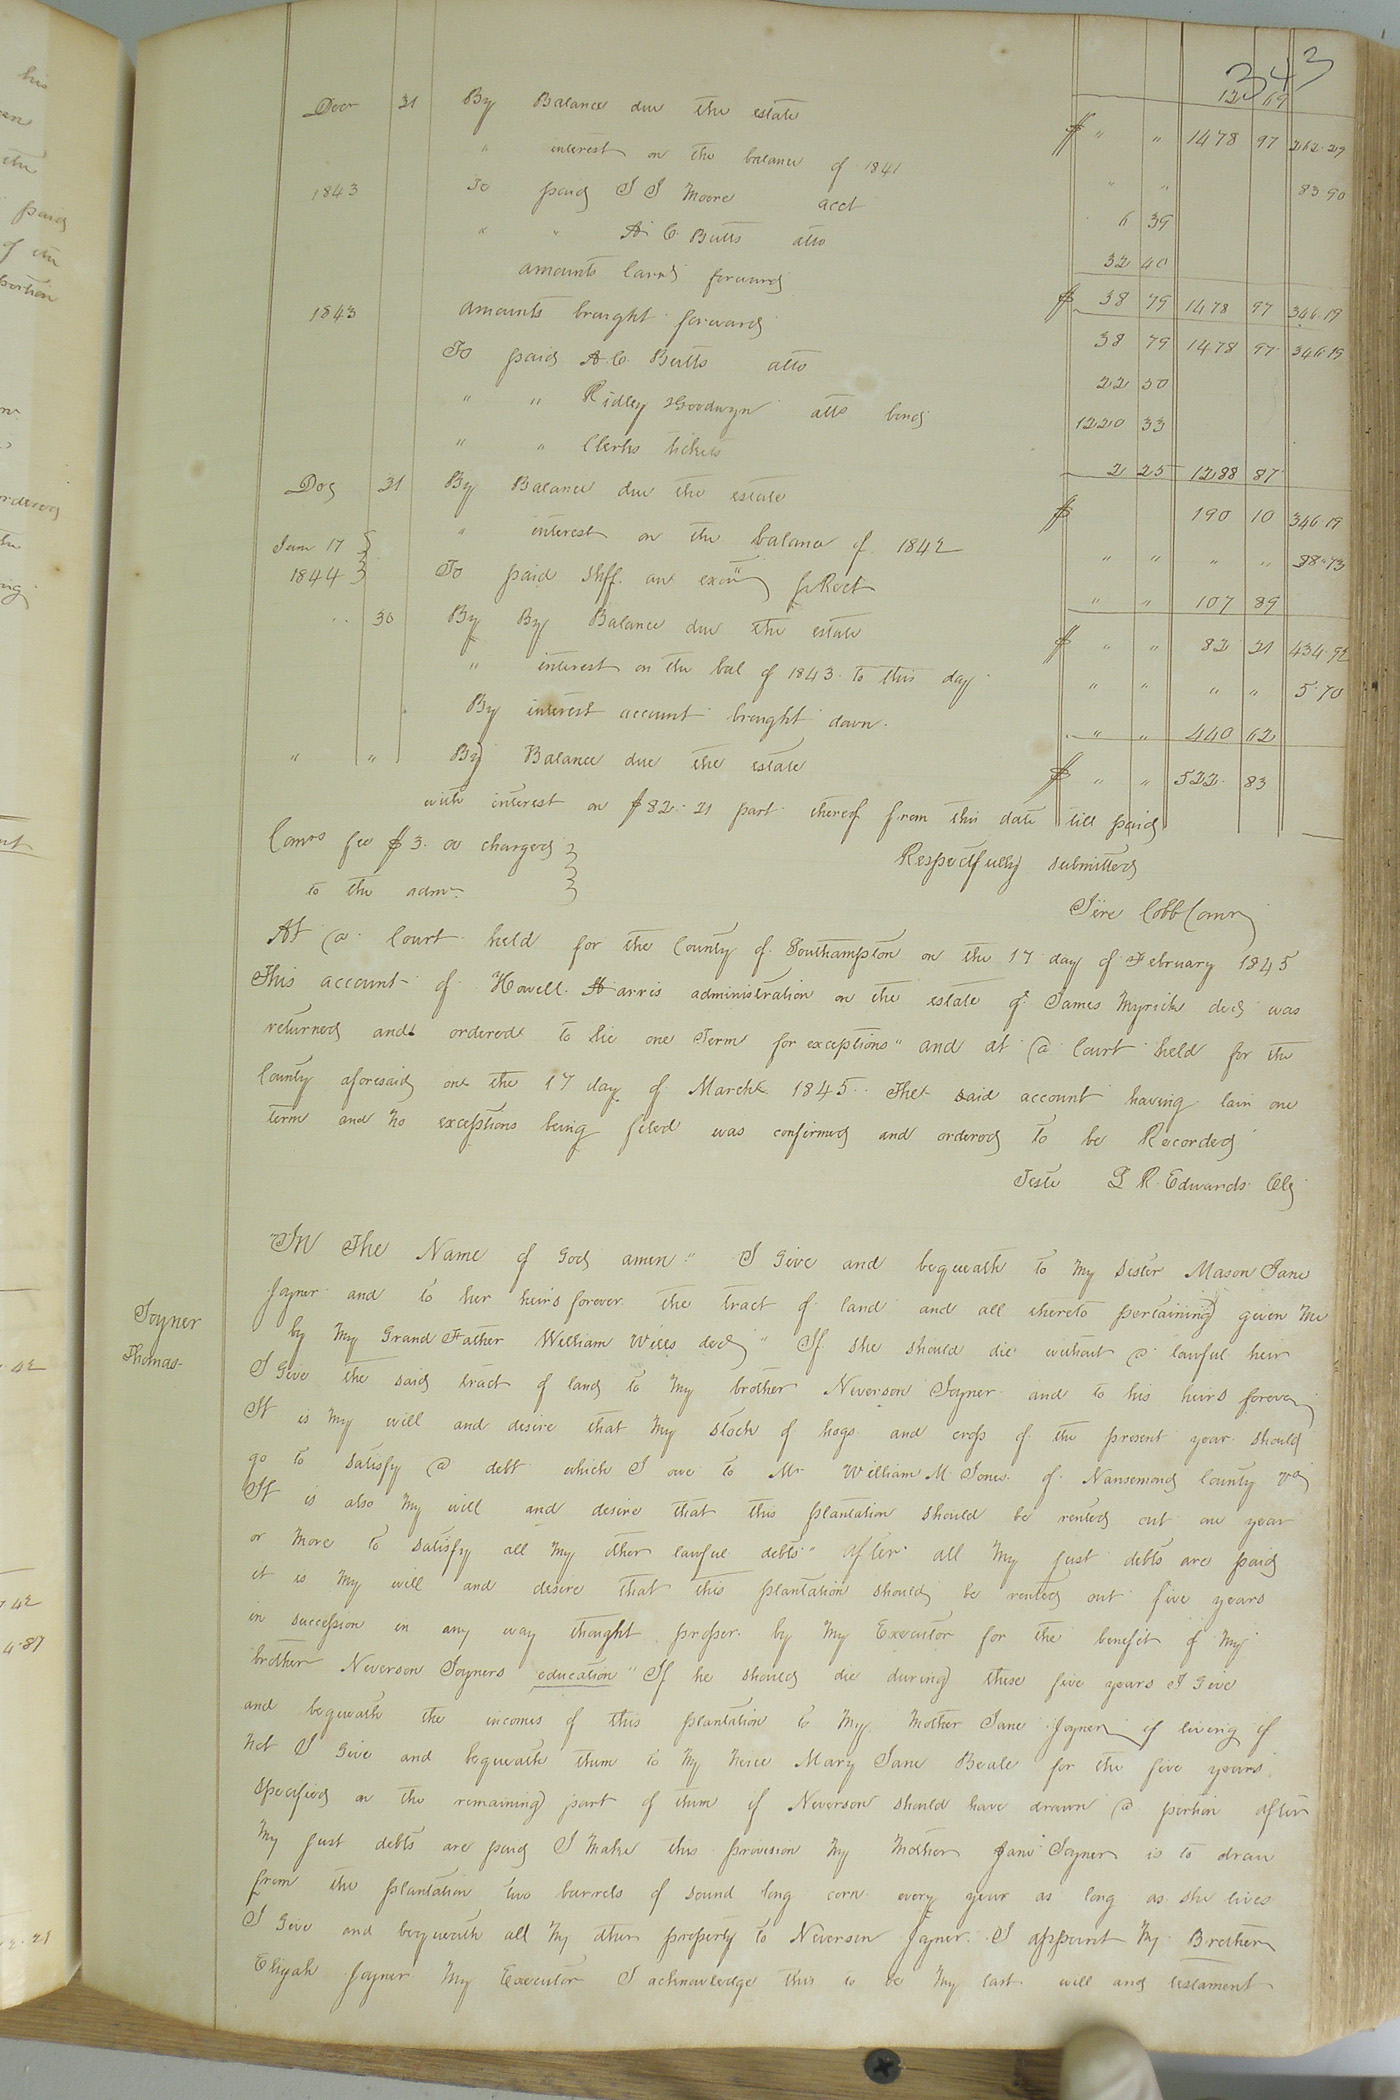 343
12 69
Decr 31 By Balance due the estate $ " " 1478 97 262.29
" interest on the balance of 1841 " " 83.90
1843 To paid J J Moore acct 6 39
" " A. C. Butts atto 32 40
amounts Carrd forward $ 38 79 1478 97 346.19
1843 amounts brought forward 38 79 1478 97 346.19
To paid A. C. Butts atto 22 50
" " Ridley & Goodwyn atto bond 1220 33
" " Clerks tickets 2 25 1288 87
Dec 31 By Balance due the estate $ 190 10 346.19
" interest on the balance of 1842 " " " " 88.73
Jan 17 1844 To paid Shff. an exeon pr Rect " " 107 89
" 30 By By Balance due the estate $ " " 82 21 434.92
" interest on the bal of 1843 to this day " " " " 5.70
By interest account brought down. " " 440 62
" " By Balance due the estate $ " " 522. 83
with interest on $82.21 part thereof from this date till paid
Comrs fee $3.00 charged
to the admr
Respectfully submitted
Jere Cobb Comr
At a Court held for the County of Southampton on the 17 day of February 1845
This account of Howell Harris administration on the estate of James Myrick decd was
returned and ordered to lie one Term for exceptions" and at a Court held for the
County aforesaid on the 17 day of March 1845.. The said account having lain one
term and no exceptions being filed was confirmed and ordered to be Recorded
Teste L R. Edwards Clk
Joyner
Thomas
In The Name of God amen" I Give and bequeath to my sister Mason Jane
Joyner and to her heirs forever the tract of land and all thereto pertaining given me
by my Grand Father William Wills decd" If she should die without a lawful heir
I Give the said tract of land to my brother Neverson Joyner and to his heirs forever
It is my will and desire that my stock of hogs and crop of the present year should
go to satisfy a debt which I owe to Mr William M. Jones of Nansemond County Va
It is also my will and desire that this plantation should be rented out one year
or more to satisfy all my other lawful debts" after all my just debts are paid
it is my will and desire that this plantation should be rented out five years
in succession in any way thought proper by my Executor for the benefit of my
brother Neverson Joyners education" If he should die during these five years I Give
and bequeath the incomes of this plantation to my Mother Jane Joyner if living if
not I Give and bequeath them to my Neice Mary Jane Beale for the five years
specified or the remaining part of them if Neverson should have drawn a portion after
my just debts are paid I make this provision my Mother Jane Joyner is to draw
from the plantation two barrels of sound long corn every year as long as she lives
I Give and bequeath all my other property to Neverson Joyner. I appoint my Brother
Elijah Joyner my Executor I acknowledge this to be my last will and testament